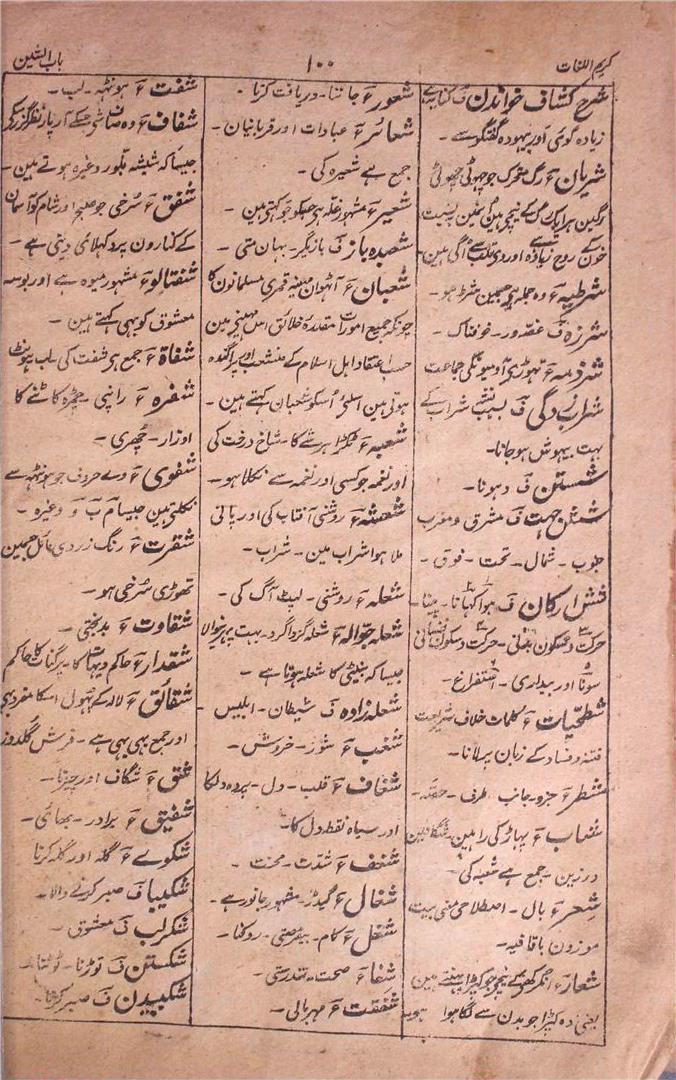 کریم اللغات
۱۰۰
باب الشین
شرح کشاف خواندن ف کنایہ ہے
زیادہ گوئی اور بیہودہ گفتگو سے -
شریان ء رگ متحرک جو چھوٹی چھوٹی
رگین ہر ایک رگ کے نیچے ہین
خون کے روح زیادہ اور دل سے اگی ہین
شرطیہ ء وہ جملہ جسمین شرط ہو -
شرزہ ف غصہ ور - خوفناک -
شرذمہ ء تھوڑی آدمیونکی جماعت
شراب زدگی ف بسبب نشہ شراب کے
بہت بیہوش ہوجانا -
شستن ف دھونا -
شش جہت ف مشرق و مغرب
جنوب - شمال - تحت - فوق -
شش ارکان ف ہوا کھانا - پینا -
حرکت و سکون بدنی - حرکت و سکون نفسانی
سونا اور بیداری - استفراغ -
شطحیات ء کلمات خلاف شریعت
فتنہ و فساد کے زبان پر لانا -
شطر ء جزو - جانب - طرف - حصہ -
شعاب ء پہاڑ کی راہین -
درزین - جمع ہے شعبہ کی -
شعر ء بال - اصطلاحی معنی بیت
موزون باقافیہ -
شعار ء کے نیچے جو کپڑا پہنتے ہین
یعنی وہ کپڑا جو بدن سے لگا ہوا ہو
شعور ء جاننا - دریافت کرنا -
شعائر ء عبادات اور قربانیان -
جمع ہے شعیرہ کی -
شعیر ء مشہور غلہ ہے جسکو جو کہتے ہین -
شعبدہ باز ف بازیگر - بھان متی -
شعبان ء آٹھوان مہینہ قمری مسلمانون کا
چونکہ جمیع امورات مقدرہ خلائق اس مہینے مین
حسب اعتقاد اہل اسلام کے منشعب اور پراگندہ
ہوتی ہین اسلئے اسکو شعبان کہتے ہین -
شعبہ ء ٹکڑا ہر شے کا - شاخ درخت کی
اور نغمہ جو کسی اور نغمہ سے نکلا ہو -
شعشعہ ء روشنی آفتاب کی اور پانی
ملا ہوا شراب مین - شراب -
شعلہ ء روشنی - لپٹ آگ کی -
شعلہ جوالہ ء شعلہ گرداگرد - بہت پھرنیوالا
جیسا کہ بنیٹی کا شعلہ ہوتا ہے -
شعلہ زادہ ف شیطان - ابلیس -
شغب ء شور - خروش -
شغاف ء قلب - دل - پردہ دلکا
اور سیاہ نقطہ دل کا -
شغف ء شدت - محبت -
شغال ء گیدڑ - مشہور جانور ہے -
شغل ء کام - بیفرصتی - روکنا -
شفا ء صحت - تندرستی -
شفقت ء مہربانی -
شفت ء ہونٹھ - لب -
شفاف ء وہ صاف شے جسکے آرپار نظر گزر کرے
جیسا کہ شیشہ بلور وغیرہ ہوتے ہین -
شفق ء سرخی جو صبح اور شام کو آسمان
کے کنارون پر دکھلائی دیتی ہے -
شفتالو ء مشہور میوہ ہے اور بوسہ
معشوق کو بھی کہتے ہین -
شفاۃ ء جمع ہی شفت کی - لب ہونٹھ
شفرہ ء راپنی - چمڑہ کاٹنے کا
اوزار - چھری -
شفوی ء وے حروف جو ہونٹھ سے
نکلتے ہین جیسا م ب و وغیرہ -
شقرت ء رنگ زردی مائل جسمین
تھوڑی سرخی ہو -
شقاوت ء بدبختی -
شقدار ء حاکم دیہات کا - پرگنات کا حاکم
شقائق ء لالہ کے پھول اسکا مفرد بھی
اور جمع بھی یہی ہے - فرش گلدوز
شق ء شگاف اور چیرنا -
شقیق ء برادر - بھائی -
شکوے ء گلہ اور گلہ کرنا
شکیبا ف صبر کرنے والا -
شکرلب ف معشوق -
شکستن ف توڑنا - ٹوٹنا -
شکیبیدن ف صبر کرنا -